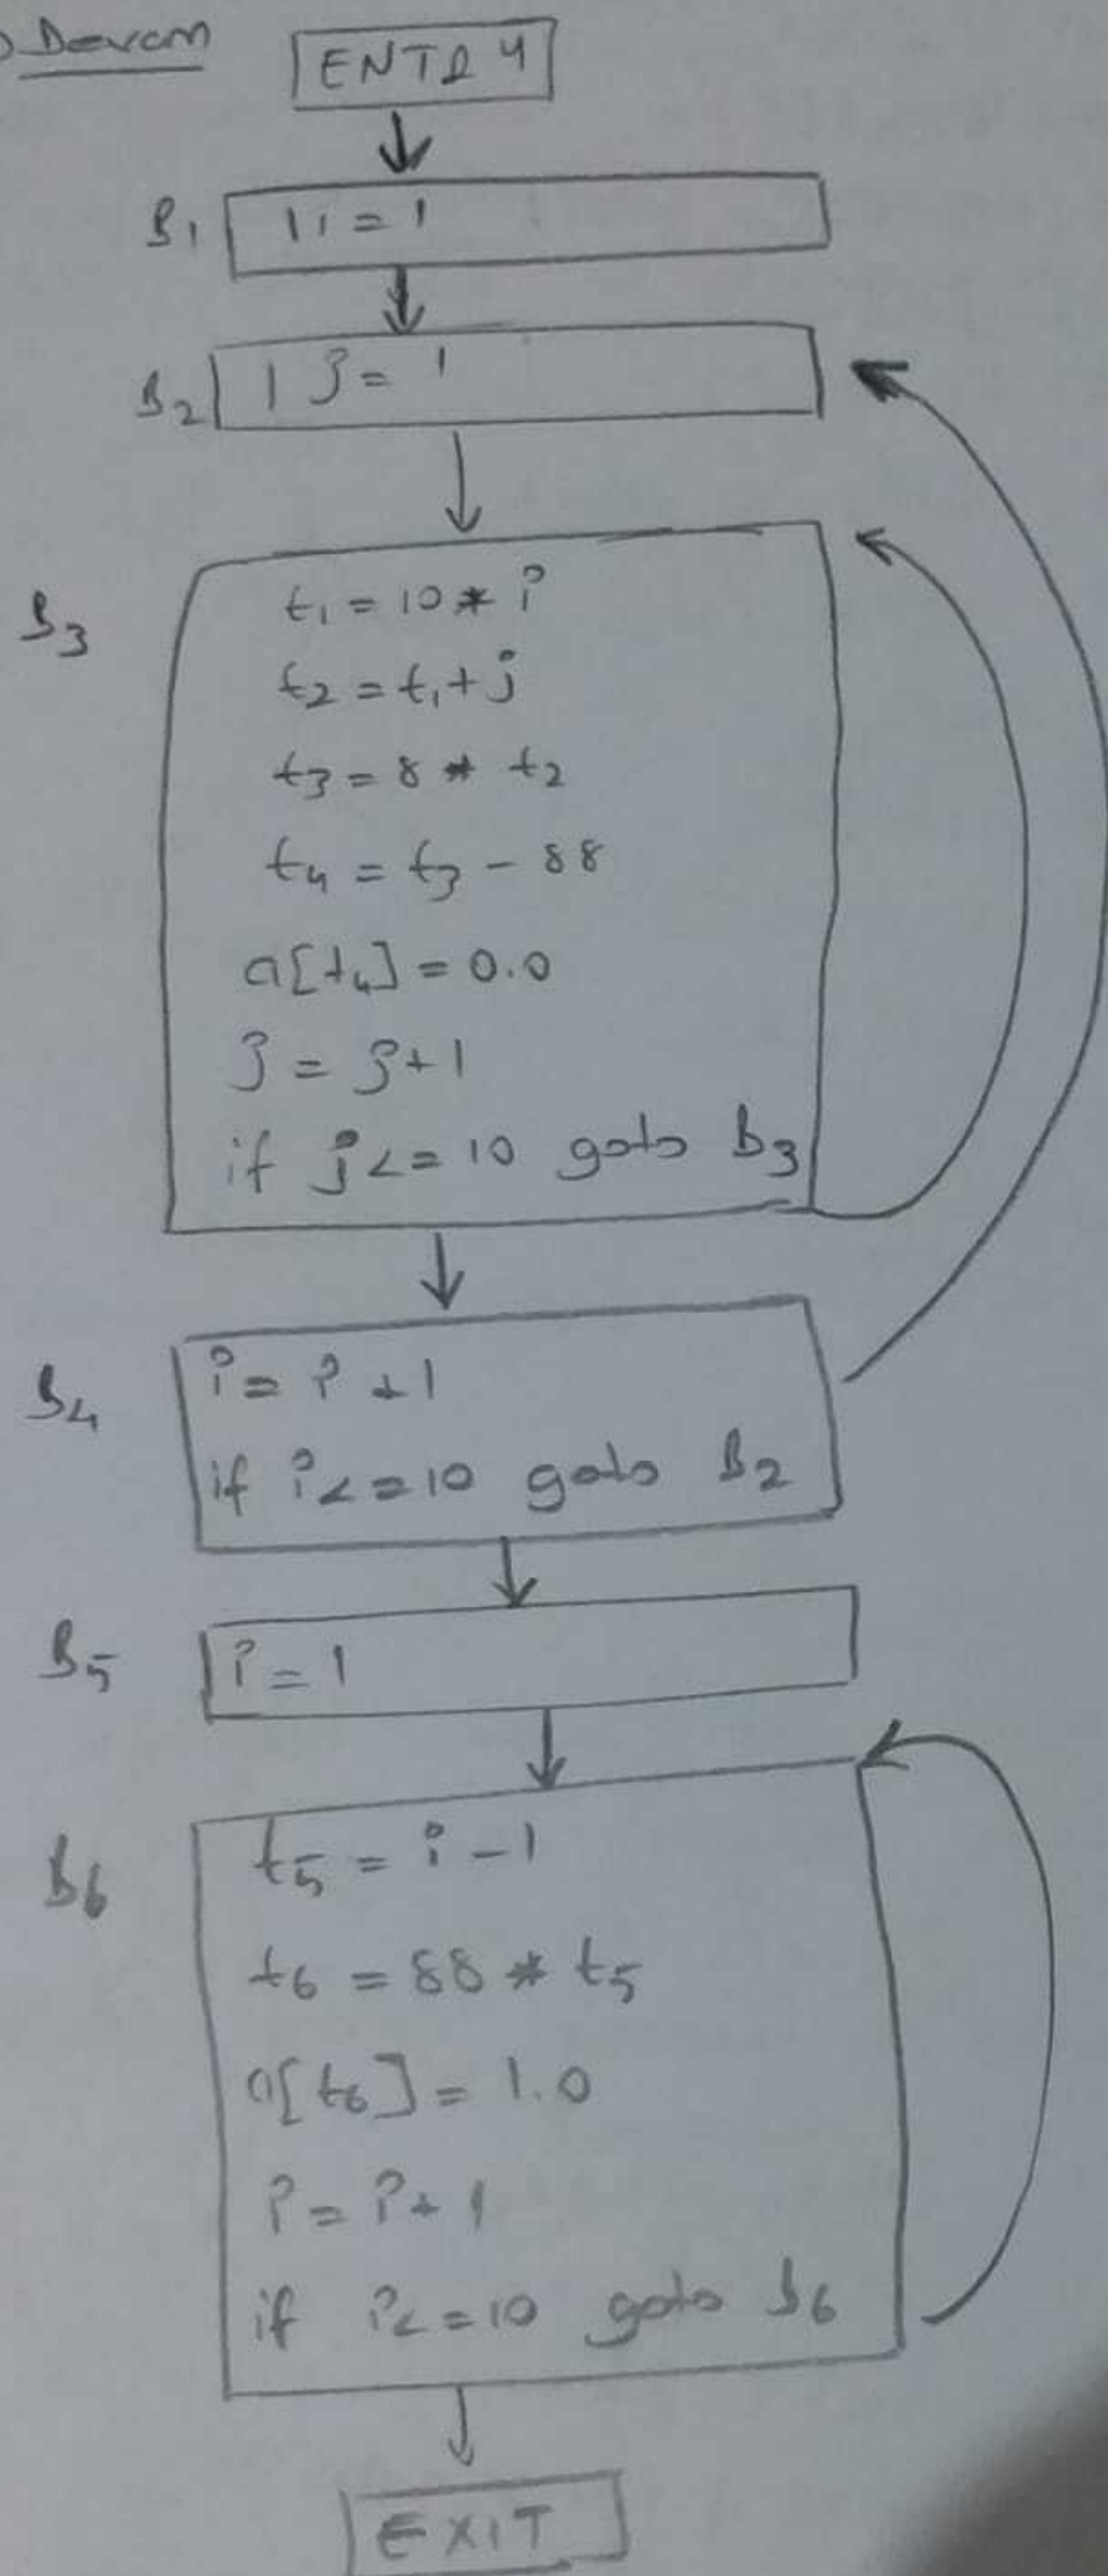 Devam
ENTRY
B1 i = 1
B2 j = 1
B3
t1 = 10 * i
t2 = t1 + j
t3 = 8 * t2
t4 = t3 - 88
a[t4] = 0.0
j = j + 1
if j <= 10 goto B3
B4
i = i + 1
if i <= 10 goto B2
B5 i = 1
B6
t5 = i - 1
t6 = 88 * t5
a[t6] = 1.0
i = i + 1
if i <= 10 goto B6
EXIT